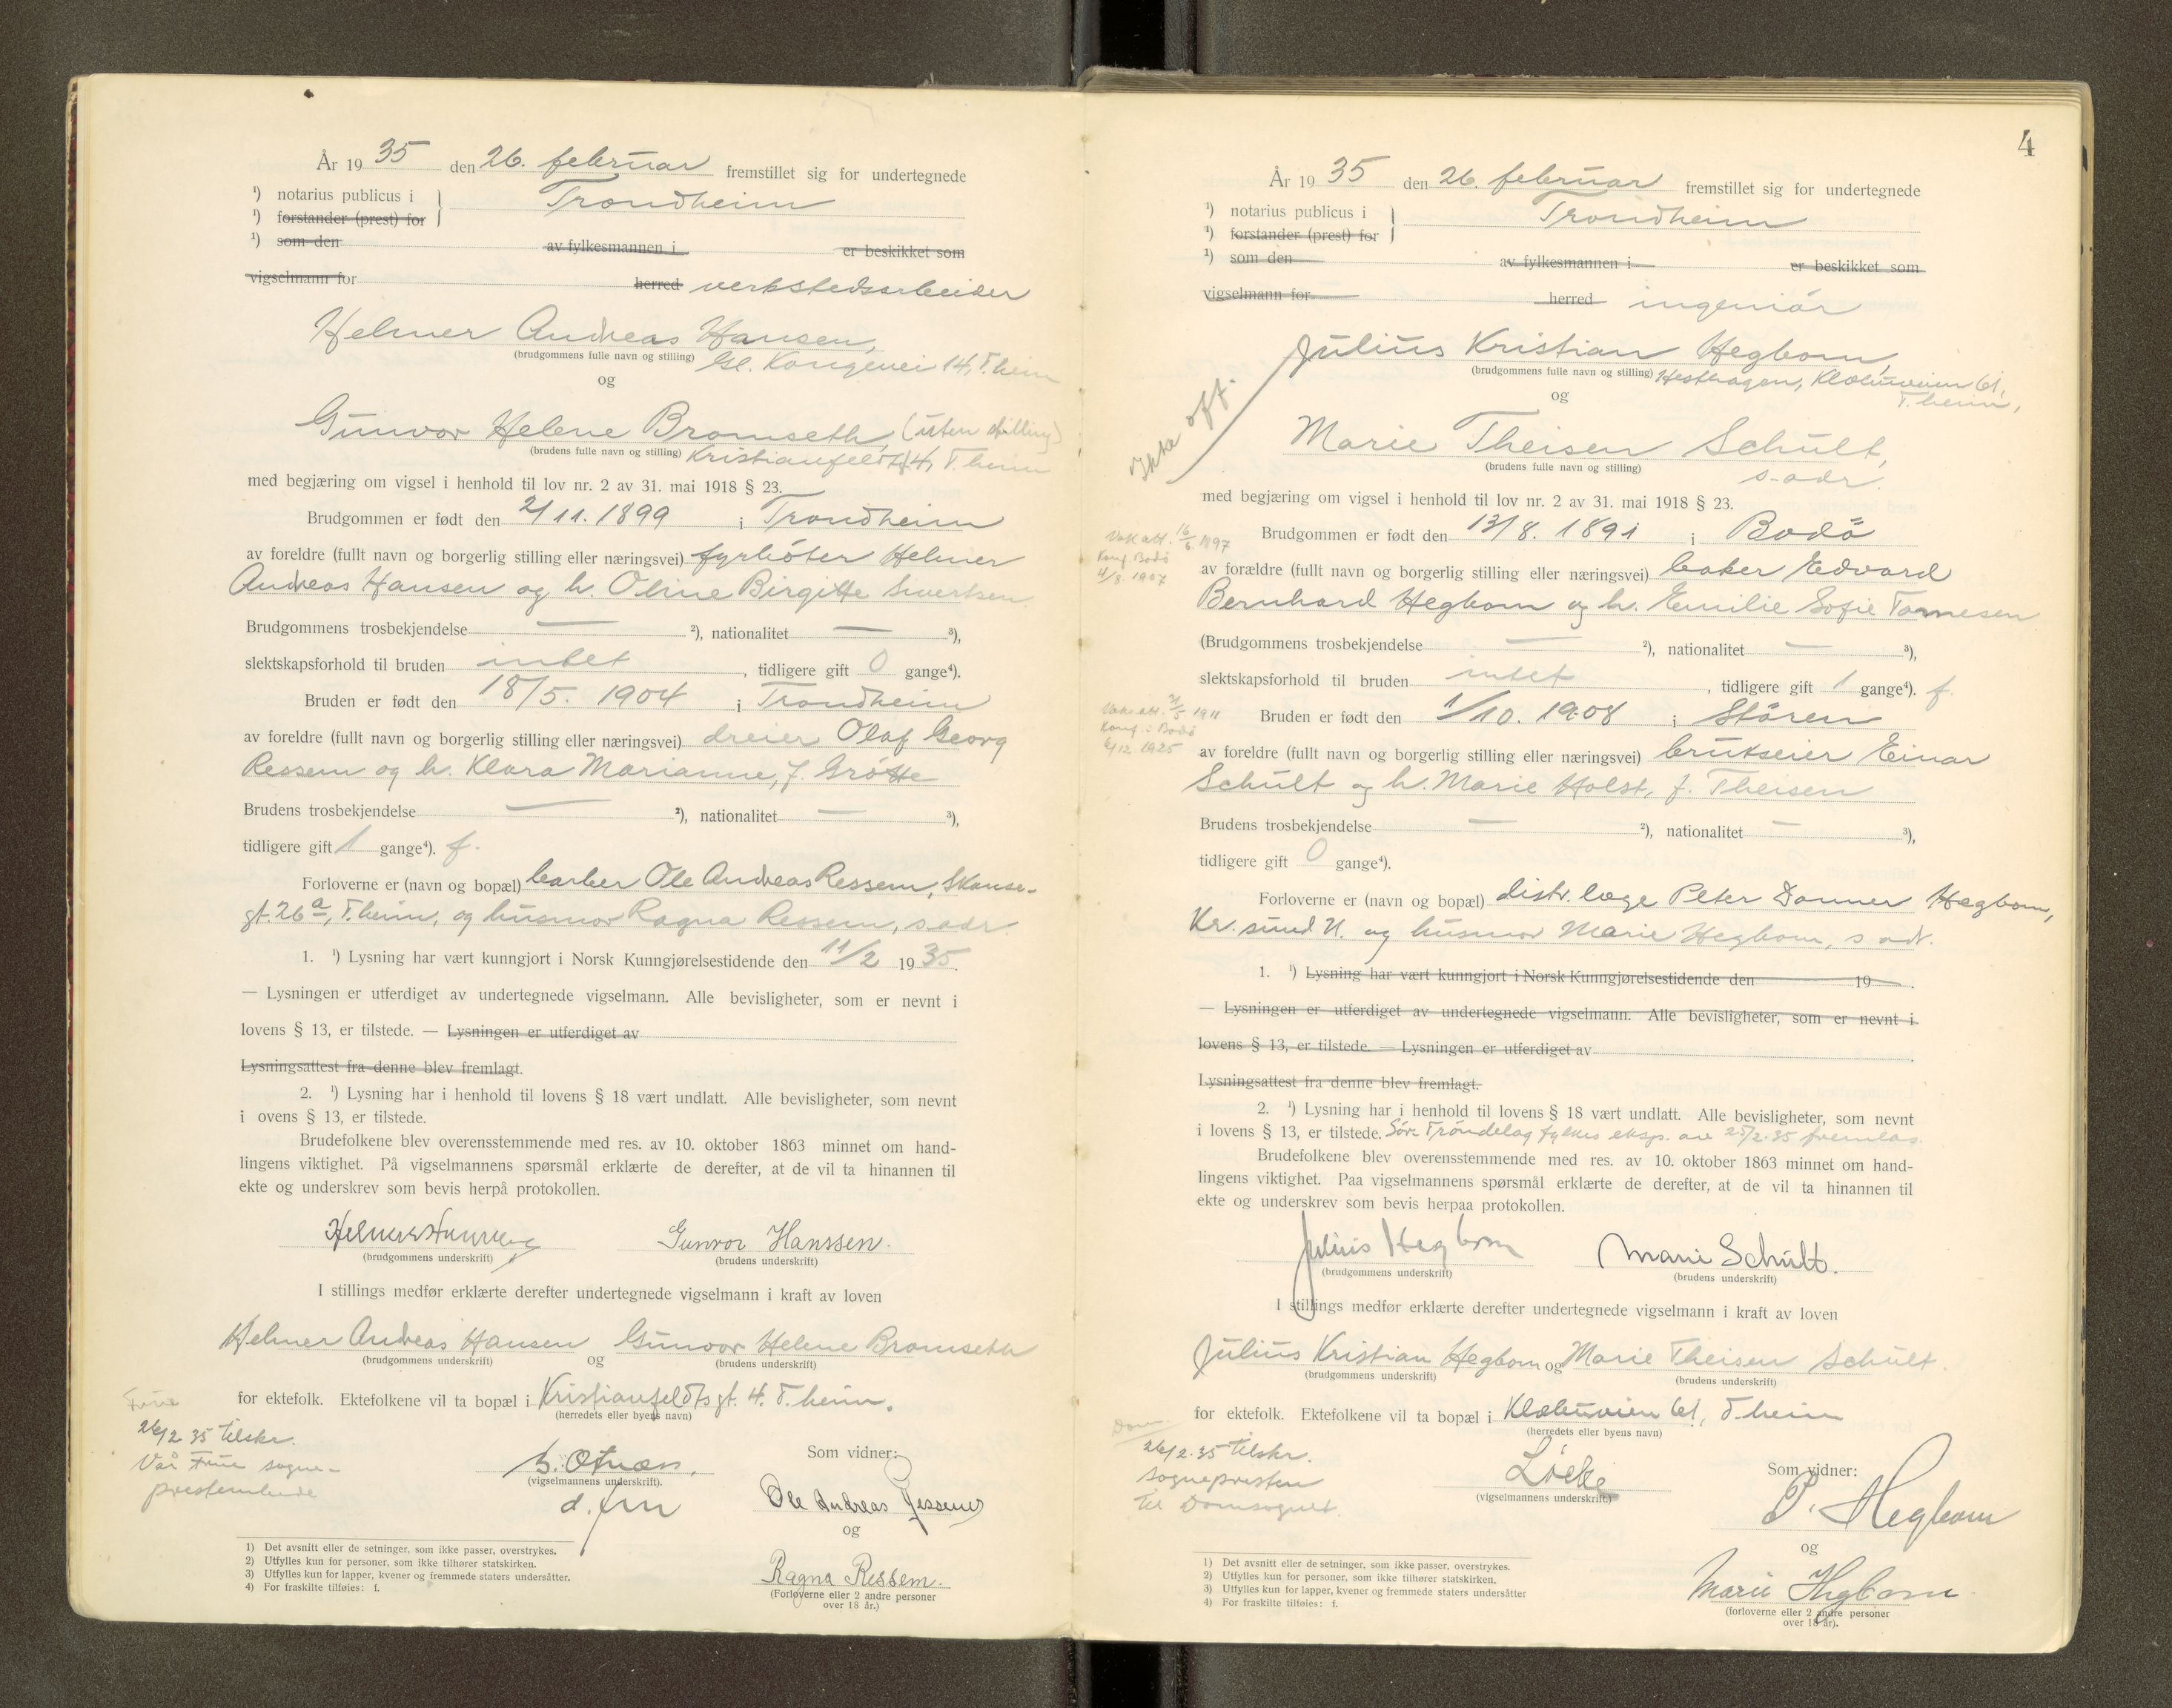 År 1935 den 26. februar fremstillet sig for undertegnede
¹) notarius publicus i } Trondheim
¹) forstander (prest) for
¹) som den av fylkesmannen i er beskikket som
vigselmann for herred verkstedsarbeider
Helmer Andreas Hansen,
(brudgommens fulle navn og stilling) Gl. Kongevei 14, T.heim
og
Gunvor Helene Bromseth, (uten stilling)
(brudens fulle navn og stilling) Kristianfeldtsgt 4, T.heim
med begjæring om vigsel i henhold til lov nr. 2 av 31. mai 1918 § 23.
Brudgommen er født den 2/11. 1899 i Trondheim
av foreldre (fullt navn og borgerlig stilling eller næringsvei) fyrbøter Helmer
Andreas Hansen og h. Oline Birgitte Sivertsen
Brudgommens trosbekjendelse — ²), nationalitet — ³),
slektskapsforhold til bruden intet, tidligere gift 0 gange⁴).
Bruden er født den 18/5. 1904 i Trondheim
av foreldre (fullt navn og borgerlig stilling eller næringsvei) dreier Olaf Georg
Ressem og h. Klara Marianne, f. Grøtte
Brudens trosbekjendelse — ²), nationalitet — ³),
tidligere gift 1 gange⁴). f.
Forloverne er (navn og bopæl) barber Ole Andreas Ressem, Skanse-
gt. 26a, T.heim, og husmor Ragna Ressem, s.adr.
1. ¹) Lysning har vært kunngjort i Norsk Kunngjørelsestidende den 11/2 1935.
— Lysningen er utferdiget av undertegnede vigselmann. Alle bevisligheter, som er nevnt i
lovens § 13, er tilstede. — Lysningen er utferdiget av
Lysningsattest fra denne blev fremlagt.
2. ¹) Lysning har i henhold til lovens § 18 vært undlatt. Alle bevisligheter, som nevnt
i ovens § 13, er tilstede.
Brudefolkene blev overensstemmende med res. av 10. oktober 1863 minnet om hand-
lingens viktighet. På vigselmannens spørsmål erklærte de derefter, at de vil ta hinannen til
ekte og underskrev som bevis herpå protokollen.
Gunvor Hanssen.
(brudgommens underskrift) (brudens underskrift)
I stillings medfør erklærte derefter undertegnede vigselmann i kraft av loven
Helmer Andreas Hansen og Gunvor Helene Bromseth
(brudgommens underskrift) (brudens underskrift)
for ektefolk. Ektefolkene vil ta bopæl i Kristianfeldtsgt. 4. T.heim.
(herredets eller byens navn)
26/2 35 tilskr.
Vår Frue sogne-
prestembede
(vigselmannens underskrift).
Som vidner:
Ole Andreas Ressem
og
Ragna Ressem.
(Forloverne eller 2 andre personer
over 18 år.)
1) Det avsnitt eller de setninger, som ikke passer, overstrykes.
2) Utfylles kun for personer, som ikke tilhører statskirken.
3) Utfylles kun for lapper, kvener og fremmede staters undersåtter.
4) For fraskilte tilføies: f.
4
År 1935 den 26. februar fremstillet sig for undertegnede
¹) notarius publicus i } Trondheim
¹) forstander (prest) for
¹) som den av fylkesmannen i er beskikket som
vigselmann for herred ingeniør
Julius Kristian Hegbom,
(brudgommens fulle navn og stilling) Hesthagen, Klæbuveien 61,
T.heim,
og
Ikke off.
Marie Theisen Schult,
(brudens fulle navn og stilling)
s. adr.
med begjæring om vigsel i henhold til lov nr. 2 av 31. mai 1918 § 23.
Brudgommen er født den 13/8. 1891 i Bodø
Vakc.att. 16/6. 1897
Konf. Bodø
4/8. 1907
av forældre (fullt navn og borgerlig stilling eller næringsvei) baker Edvard
Bernhard Hegbom og h. Emilie Sofie Tønnesen
(Brudgommens trosbekjendelse — ²), nationalitet — ³),
slektskapsforhold til bruden intet, tidligere gift 1 gange⁴). f.
Bruden er født den 1/10. 1908 i Støren
1911
Konf. i Bodø
6/12 1925
av foreldre (fullt navn og borgerlig stilling eller næringsvei) brukseier Einar
Schult og h. Marie Holst, f. Theisen
Brudens trosbekjendelse — ²), nationalitet — ³),
tidligere gift 0 gange⁴).
Forloverne er (navn og bopæl) distr. læge Peter Hegbom,
Kr. sund N. og husmor Marie Hegbom, s adr.
1. ¹) Lysning har vært kunngjort i Norsk Kunngjørelsestidende den 19 .
— Lysningen er utferdiget av undertegnede vigselmann. Alle bevisligheter, som er nevnt i
lovens § 13, er tilstede. — Lysningen er utferdiget av .
Lysningsattest fra denne blev fremlagt.
2. ¹) Lysning har i henhold til lovens § 18 vært undlatt. Alle bevisligheter, som nevnt
i lovens § 13, er tilstede. Sør Trøndelag fylkes eksp. av 25/2.35 fremlag.
Brudefolkene blev overensstemmende med res. av 10. oktober 1863 minnet om hand-
lingens viktighet. Paa vigselmannens spørsmål erklærte de derefter, at de vil ta hinannen til
ekte og underskrev som bevis herpaa protokollen.
Julius Hegbom Marie Schult.
(brudgommens underskrift) (brudens underskrift)
I stillings medfør erklærte derefter undertegnede vigselmann i kraft av loven
Julius Kristian Hegbom og Marie Theisen Schult.
(brudgommens underskrift) (brudens underskrift)
for ektefolk. Ektefolkene vil ta bopæl i Klæbuveien 61, T.heim
(herredets eller byens navn)
Dom
26/2.35 tilskr.
Sognepresten
til Domsognet.
(vigselmannens underskrift.)
Som vidner:
P. Hegbom
og
Marie Hegbom
(forloverne eller 2 andre personer
over 18 år).
1) Det avsnitt eller de setninger, som ikke passer, overstrykes.
2) Utfylles kun for personer, som ikke tilhører statskirken.
3) Utfylles kun for lapper, kvener og fremmede staters undersåtter
4) For fraskilte tilføies: f.